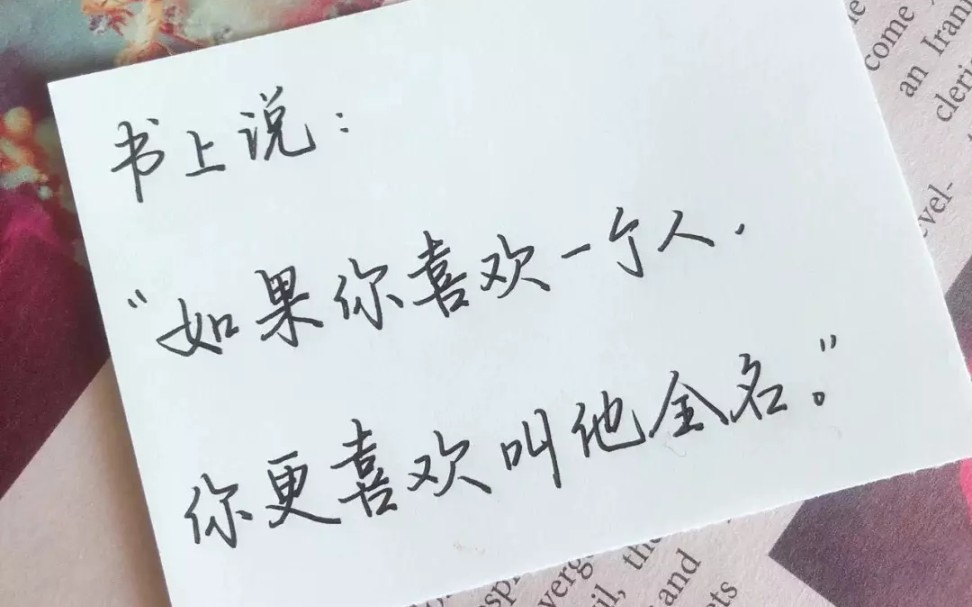 书上说：
“如果你喜欢一个人，
你更喜欢叫他全名。”
come
an Irann
cleric
evel-
the
and